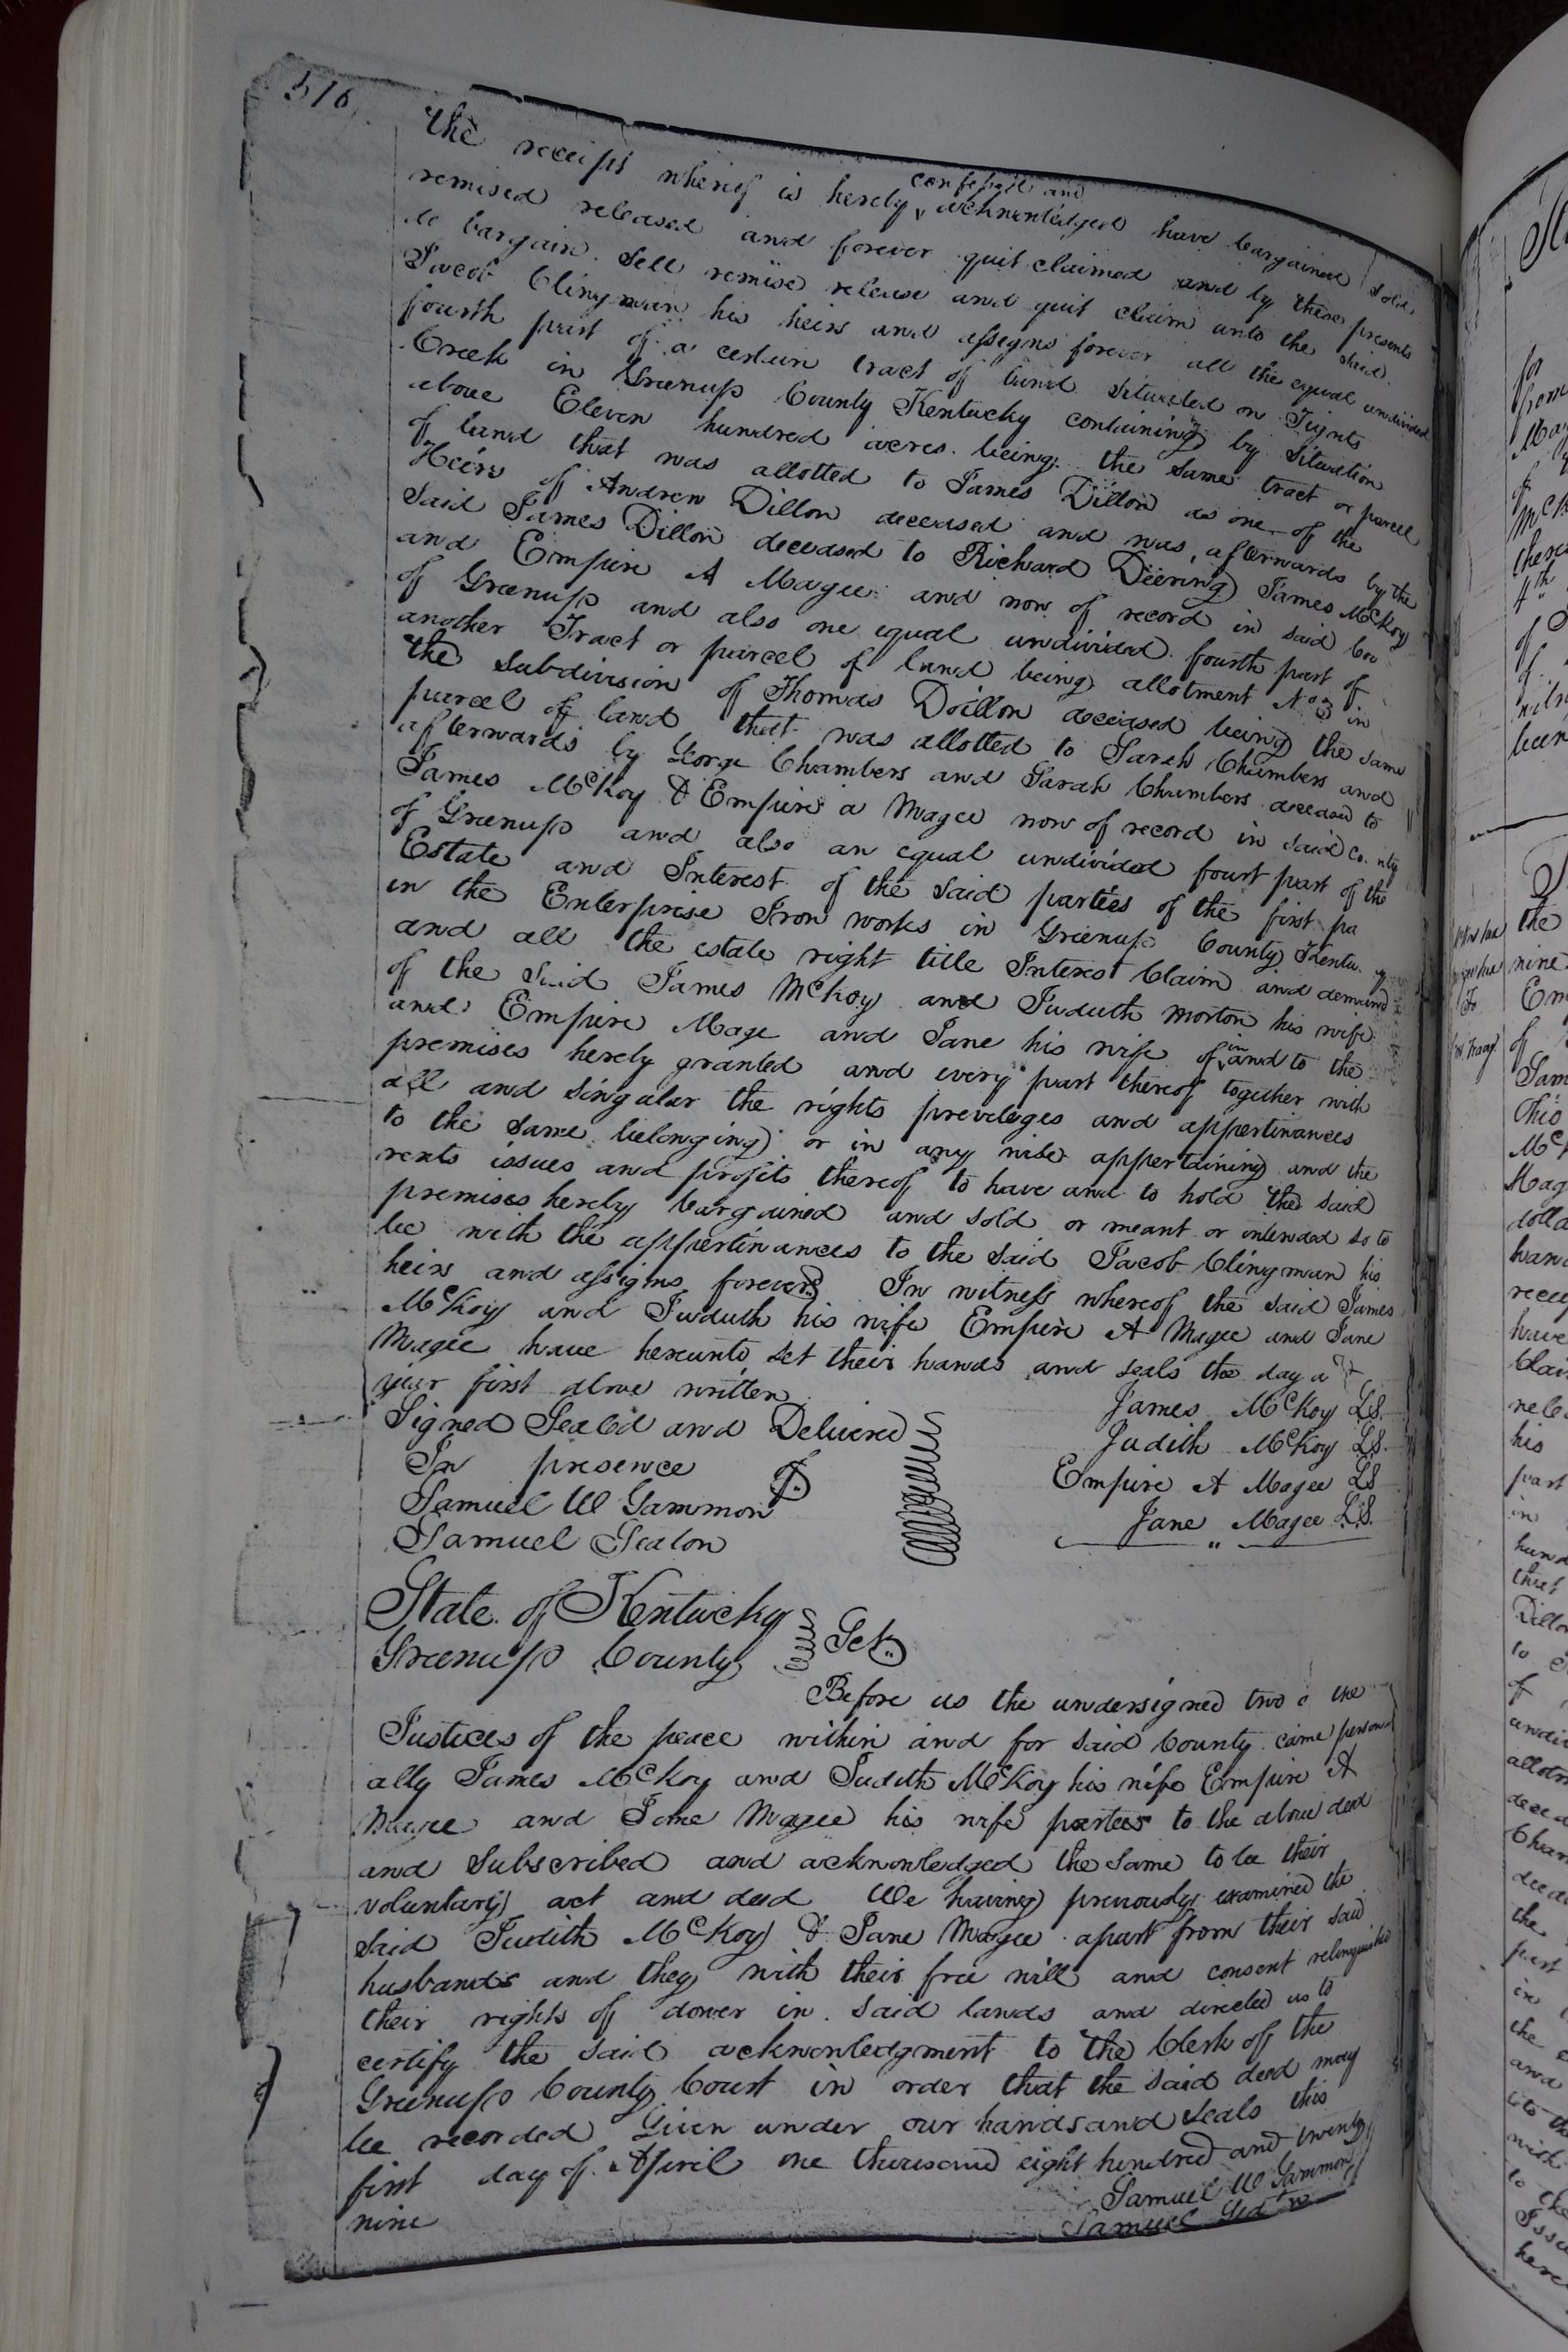 516
The receipt whereof is hereby confessed and acknowledged have bargained sold
remised released and forever quit claimed and by these presents
do bargain Sell remise release and quit claim unto the said
Jacob Clingman his heirs and assigns forever all the equal undivided
fourth part of a certain tract of land Situated on Tignts
Creek in Greenup County Kentucky containing by Situation
above Eleven hundred acres being the same tract or parcel
of land that was allotted to James Dillon as one of the
Heirs of Andrew Dillon deceased and was afterwards by the
said James Dillon deceased to Richard Deering James McKoy
and Empire A Magee and now of record in said Cou
of Greenup and also one equal undivided fourth part of
another Tract or parcel of land being allotment No 3 in
the Subdivision of Thomas Dillon deceased being the same
parcel of land that was allotted to Sarah Chambers and
afterwards by George Chambers and Sarah Chambers deceased to
James McKoy & Empire a Magee now of record in said Co nty
of Greenup and also an equal undivided fourt part of the
Estate and Interest of the Said parties of the first pa
in the Enterprise Iron works in Greenup County Kentu y
and all the estate right title Interest Claim and demand
of the Said James McKoy and Juduth Morton his wife
and Empire Mage and Jane his wife of in and to the
premises hereby granted and every part thereof together with
all and singular the rights previleges and appertinances
to the same belonging or in any wise appertaining and the
rents issues and profits thereof to have and to hold the said
premises hereby bargained and sold or meant or intended so to
be with the appertinances to the said Jacob Clingman his
heirs and assigns forever In witness whereof the said James
McKoy and Juduth his wife Empire A Magee and Jane
Magee have hereunto set their hands and seals the day a
year first above written
Signed Sealed and Delivered
In presence
Samuel W Gammon
Samuel Seaton
James McKoy LS.
Judith McKoy LS.
Empire A Magee LS
Jane Magee LS.
State of Kentucky
Greenup County Sct.
Before us the undersigned two o the
Justices of the peace within and for said County came person
ally James McKoy and Judith McKoy his wife Empire A
Magee and Jane Magee his wife parties to the above deed
and Subscribed and acknowledged the same to be their
voluntary act and deed We having previously examined the
said Judith McKoy & Jane Magee apart from their said
husbands and they with their free will and consent relinquished
their rights of dower in said lands and directed us to
certify the said acknowledgment to the Clerk off the
Greenup County Court in order that the said deed may
be recorded Given under our hands and seals this
first day of April one thousand eight hundred and twenty
nine
Samuel W Gammon
Samuel Seaton